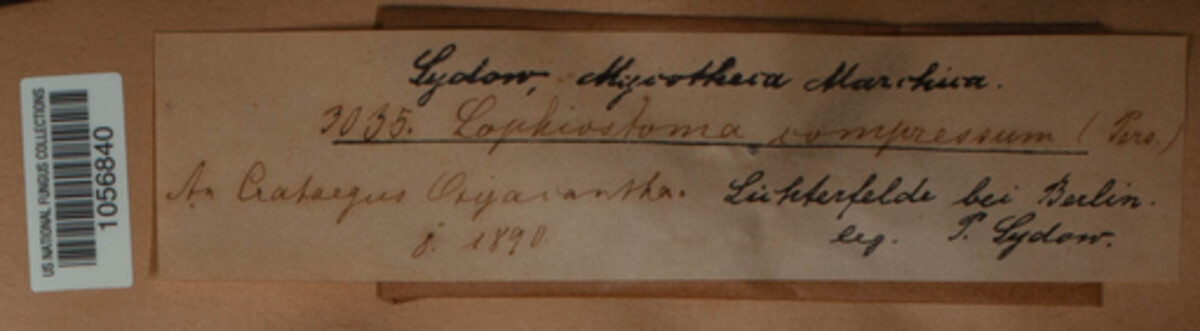 US NATIONAL FUNGUS COLLECTIONS
1056840
Sydow, Mycotheca Marchica.
3035. Lophiostoma compressum (Pers.)
An Crataegus Oxyacantha. Lichterfelde bei Berlin.
8. 1890. leg. P. Sydow.